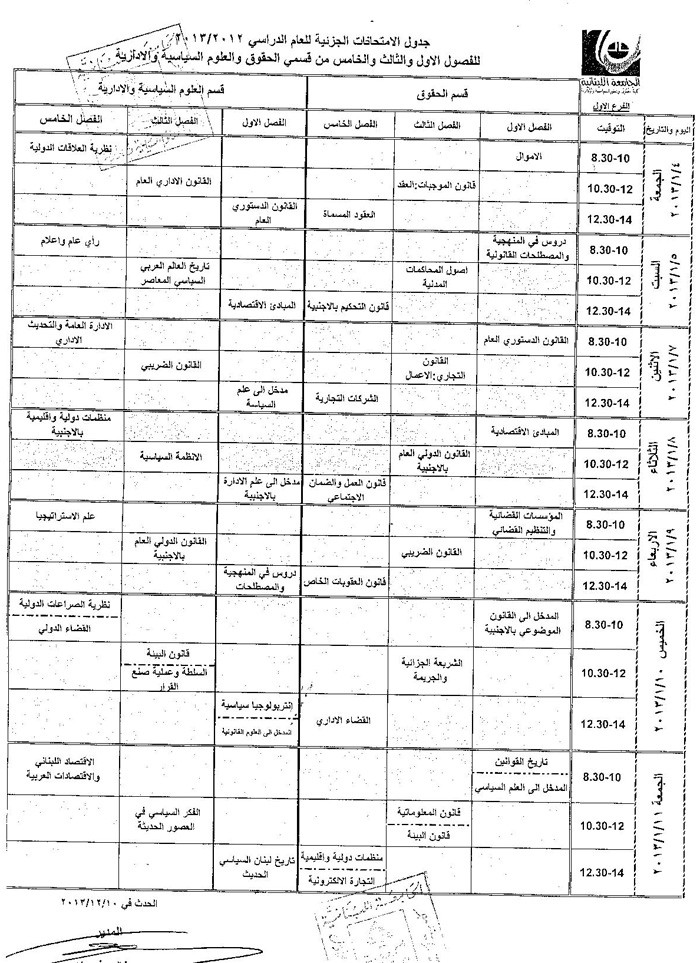 جدول الامتحانات الجزئية للعام الدراسي ٢٠١٣/٢٠١٢
للفصول الاول والثالث والخامس من قسمي الحقوق والعلوم السياسية والادارية
الجامعة اللبنانية
الفرع الاول
قسم الحقوق
قسم العلوم السياسية والادارية
اليوم والتاريخ
التوقيت
الفصل الاول
الفصل الثالث
الفصل الخامس
الفصل الاول
الفصل الثالث
الفصل الخامس
الجمعة ٢٠١٣/١/٤
8.30-10
الاموال
نظرية العلاقات الدولية
10.30-12
قانون الموجبات:العقد
القانون الاداري العام
12.30-14
العقود المسماة
القانون الدستوري
العام
السبت ٢٠١٣/١/٥
8.30-10
دروس في المنهجية
والمصطلحات القانونية
رأي عام واعلام
10.30-12
اصول المحاكمات
المدنية
تاريخ العالم العربي
السياسي المعاصر
12.30-14
قانون التحكيم بالاجنبية
المبادئ الاقتصادية
الاثنين ٢٠١٣/١/٧
8.30-10
القانون الدستوري العام
الادارة العامة والتحديث
الاداري
10.30-12
القانون
التجاري:الاعمال
القانون الضريبي
12.30-14
الشركات التجارية
مدخل الى علم
السياسة
الثلاثاء ٢٠١٣/١/٨
8.30-10
المبادئ الاقتصادية
منظمات دولية واقليمية
بالاجنبية
10.30-12
القانون الدولي العام
بالاجنبية
الانظمة السياسية
12.30-14
قانون العمل والضمان
الاجتماعي
مدخل الى علم الادارة
بالاجنبية
الاربعاء ٢٠١٣/١/٩
8.30-10
المؤسسات القضائية
والتنظيم القضائي
علم الاستراتيجيا
10.30-12
القانون الضريبي
القانون الدولي العام
بالاجنبية
12.30-14
قانون العقوبات الخاص
دروس في المنهجية
والمصطلحات
الخميس ٢٠١٣/١/١٠
8.30-10
المدخل الى القانون
الموضوعي بالاجنبية
نظرية الصراعات الدولية
القضاء الدولي
10.30-12
الشريعة الجزائية
والجريمة
قانون البيئة
السلطة وعملية صنع
القرار
12.30-14
القضاء الاداري
إنتربولوجيا سياسية
المدخل الى العلوم القانونية
الجمعة ٢٠١٣/١/١١
8.30-10
تاريخ القوانين
المدخل الى العلم السياسي
الاقتصاد اللبناني
والاقتصادات العربية
10.30-12
قانون المعلوماتية
قانون البيئة
الفكر السياسي في
العصور الحديثة
12.30-14
منظمات دولية واقليمية
التجارة الالكترونية
تاريخ لبنان السياسي
الحديث
الحدث في ٢٠١٣/١٢/١٠
المدير
الجامعة اللبنانية